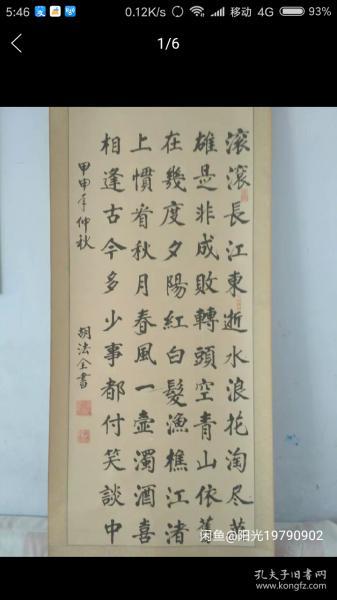 5:46 0.12K/s 移动 4G 93%
1/6
滚滚長江東逝水浪花淘尽英
雄是非成敗轉頭空青山依舊
在幾度夕陽紅白髮漁樵江渚
上慣看秋月春風一壺濁酒喜
相逢古今多少事都付笑談中
甲申年仲秋
胡法全書
闲鱼@阳光19790902
孔夫子旧書网
www.kongfz.com